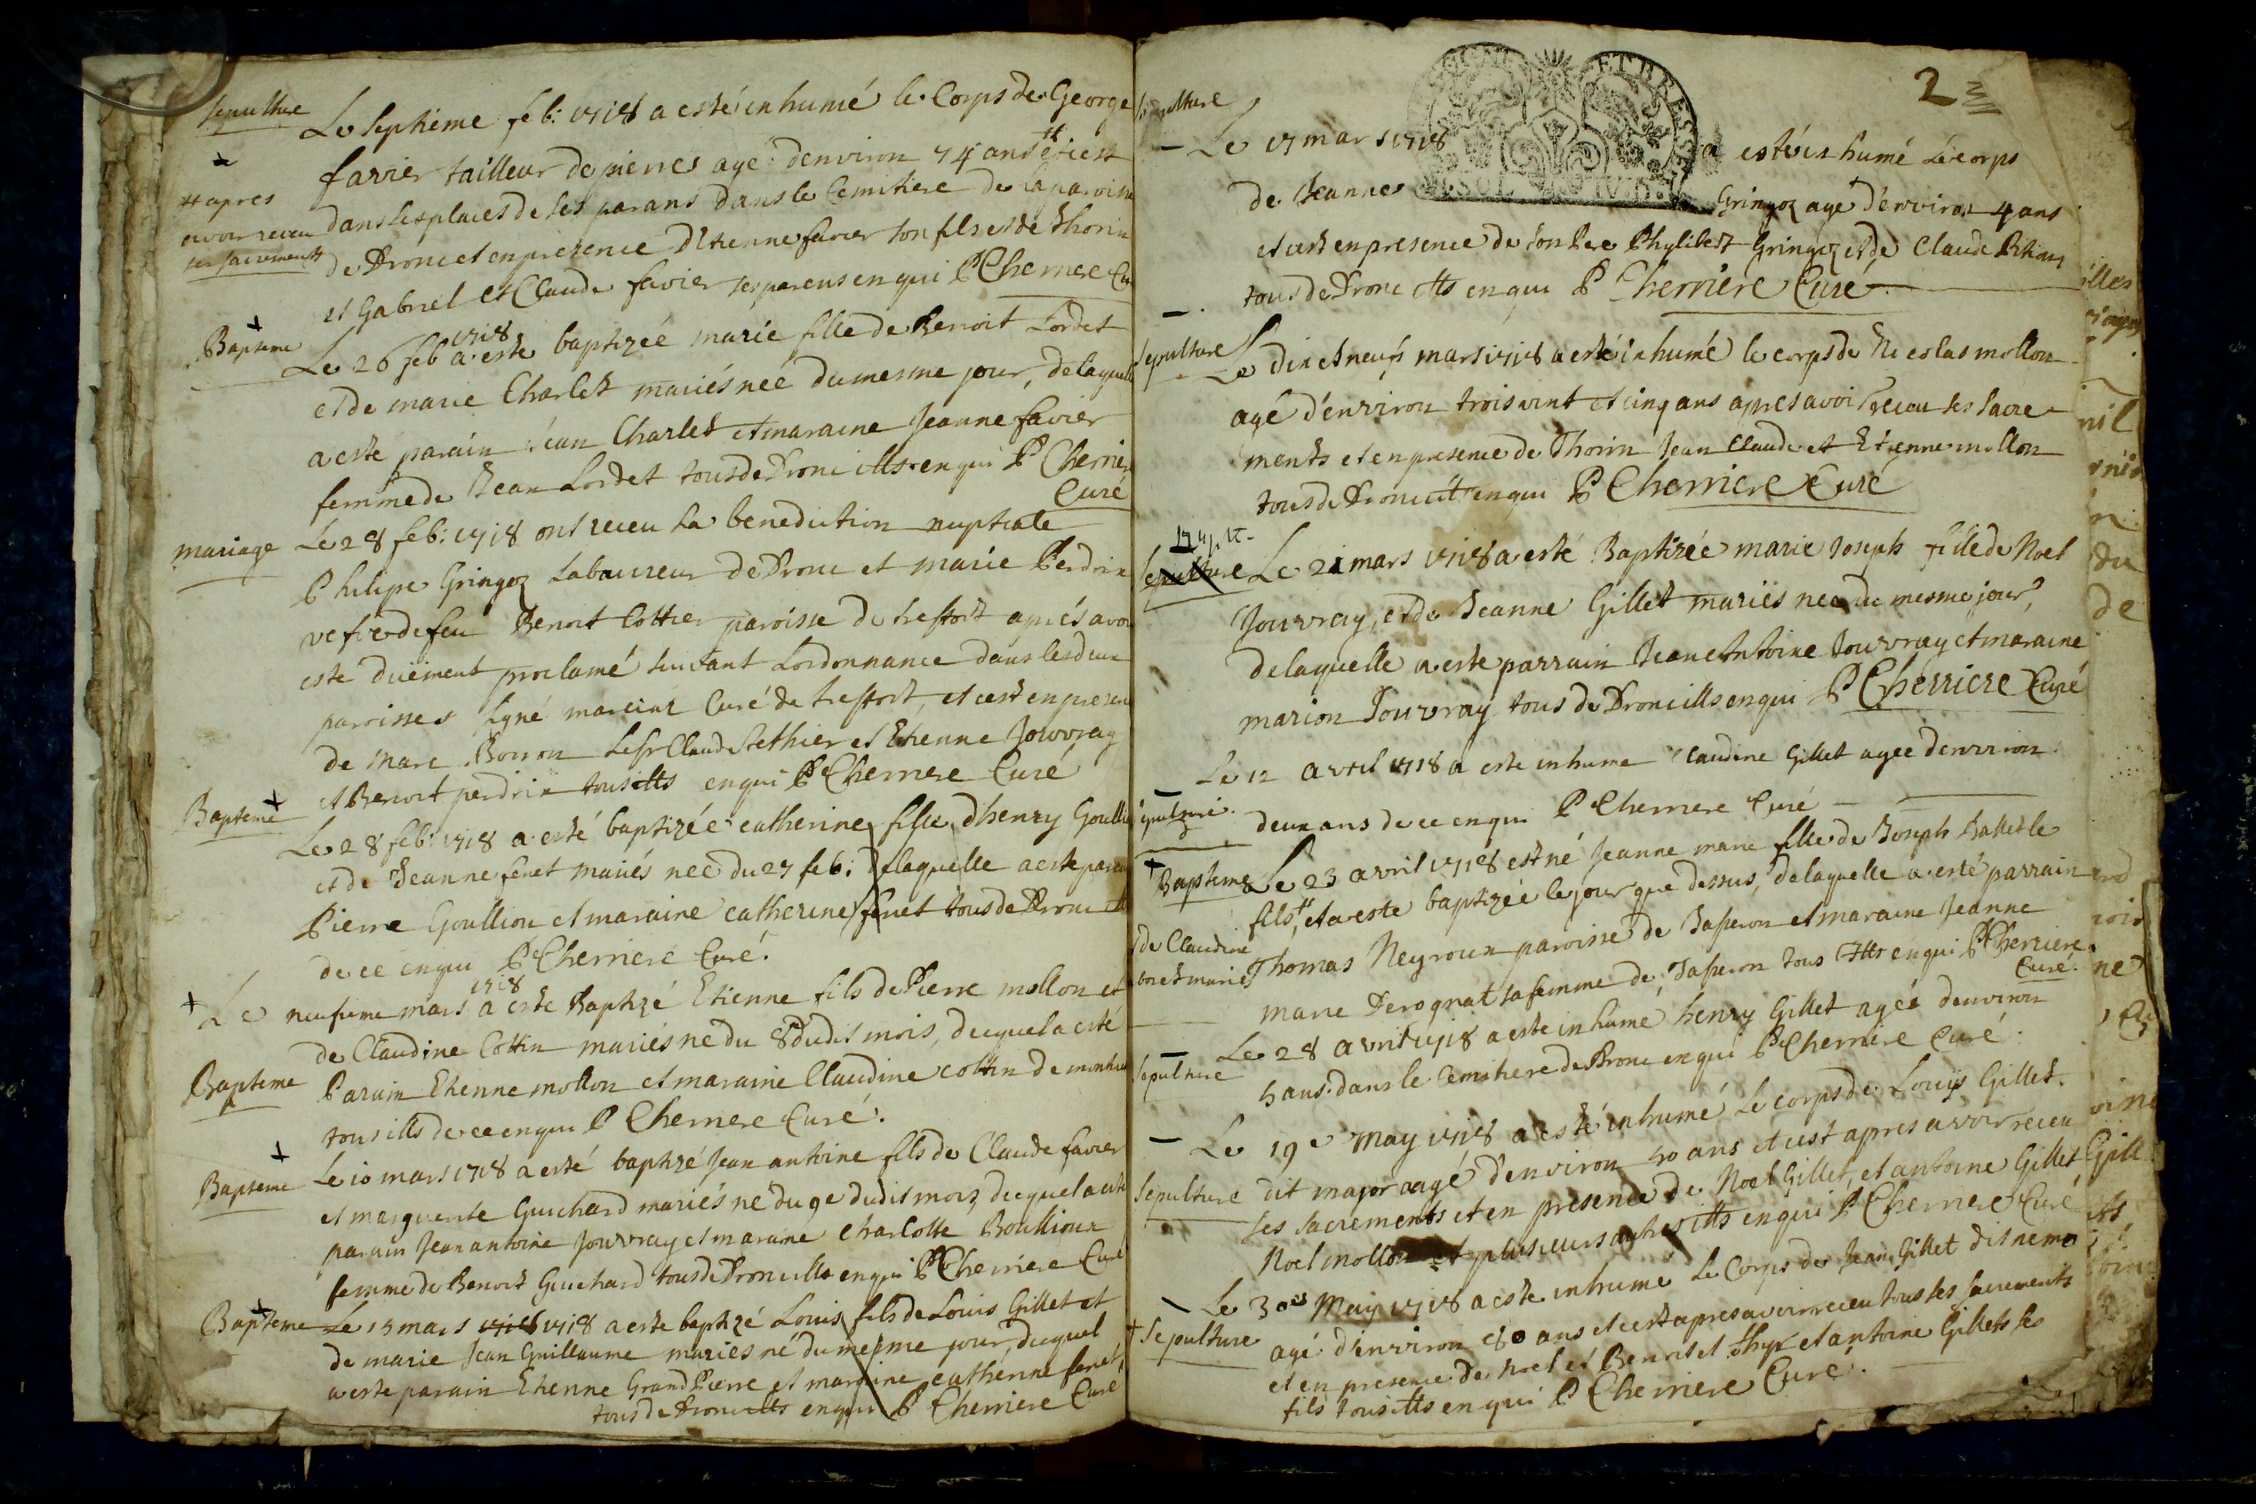 sepulture
Le septieme feb: 1718 a esté inhumé le Corps de George
favier tailleur de pierres agé d'environ 74 ans # et cest
# apres
avoir receu
ses sacrements
dans les places de ses parans dans le Cemitiere de la paroisse
de Drom et en presence D'Etienne favier son fils et de Thorin
et Gabriel et Claude favier ses parens en qui P Cherriere Curé
Bapteme
Le 26 feb 1718 a esté baptizée marie fille de Benoit Lordet
et de marie Charlet mariés née du mesme jour, de laquelle
a esté parain Jean Charlet et maraine Jeanne favier
femme de Jean Lordet tous de Drom ills en qui P Cherriere
Curé
mariage
Le 28 feb: 1718 ont receu la benediction nuptiale
Philipe Gringoz Laboureur de Drom et marie Perdrix
vefve de feu Benoit Cottier paroisse de treffort aprés avoir
esté duëment proclamé suivant Lordonnance dans les deux
paroisses signé Curé de treffort, et cest en presence
de marc Claude et Etienne Jouvray
et Benoit perdrix tous ills en qui P Cherriere Curé
Bapteme
Le 28 feb: 1718 a esté baptizée catherine fille d'henry Goullion
et de Jeanne fenet mariés née du 27 feb: de laquelle a esté parain
Pierre Goullion et maraine catherine fenet tous de Drom ills
de ce enqui P Cherriere Curé.
Le neufieme mars 1718 a esté Baptizé Etienne fils de Pierre mollon et
de Claudine Cottin mariés né du 8 dudit mois, duquel a esté
Bapteme
Parain Etienne mollon et maraine Claudine cottin de
tous ills de ce enqui P Cherriere Curé.
Bapteme
Le 10 mars 1718 a esté baptizé Jean antoine fils de Claude favier
et marguerite Guichard mariés né du 9e dudit mois, duquel a esté
parain Jean antoine Jouvray et maraine Charlotte Boullioux
femme de Benoit Guichard tous de Drom ills enqui P Cherriere Curé
Bapteme
Le 15 mars 1718 1718 a esté baptizé Louis fils de Louis Gillet et
de marie Jean Guillaume mariés né du mesme jour, duquel
a esté parain Etienne Grand Pierre et maraine catherine fenet,
tous de Drom ills enqui P Cherriere Curé
2
sepulture
Le 17 mars 1718 a esté inhumé Le corps
de Jeanne Gringoz agé d'environ 4 ans
et cest en presence de son Pere Phylibert Gringoz et de Claude
tous de Drom ills enqui P Cherriere Curé
sepulture
Le dix et neufs mars 1718 a esté inhumé le corps de Nicolas mollon
agé d'environ trois vint et cinq ans apres avoir receu ses sacre-
ments et en presence de Thorin Jean Claude et Etienne mollon
tous de Drom ills enqui P Cherriere Curé
Bapt.
sepulture
Le 21 mars 1718 a esté Baptizée marie Joseph fille de Noel
Jouvray, et de Jeanne Gillet mariés née du mesme jour,
de laquelle a esté parrain Jean Antoine Jouvray et maraine
marion Jouvray tous de Drom ills enqui P Cherriere Curé
sepulture
Le 12 avril 1718 a esté inhumé Claudine Gillet agée d'environ
deux ans de ce enqui P Cherriere Curé
Bapteme
Le 23 avril 1718 est né Jeanne marie fille de Joseph Ballet le
fils, # et a esté baptizée le jour que dessus, de laquelle a esté parrain
# de Claudine
mariés
Thomas Neyroux paroisse de Jasseron et maraine Jeanne
marie Derognat sa femme de Jasseron tous Ills enqui P Cherriere
Curé.
sepulture
Le 28 avril 1718 a esté inhumé henry Gillet agée d'environ
5 ans. dans le Cemitiere de Drom enqui P Cherriere Curé.
sepulture
Le 19e May 1718 a esté inhumé Le corps de Louys Gillet
dit major agé d'environ 40 ans et cest apres avoir receu
ses sacrements et en presence de Noel Gillet, et antoine Gillet
Noel mollon et plusieurs autres ills enqui P Cherriere Curé
sepulture
Le 30es May 1718 a esté inhumé Le Corps de Jean Gillet dit nemo
agé d'environ 80 ans et cest apres avoir receu tous ses sacrements
et en presence de noel et Benoit et et antoine Gillets ses
fils tous ills en qui P Cherriere Curé.